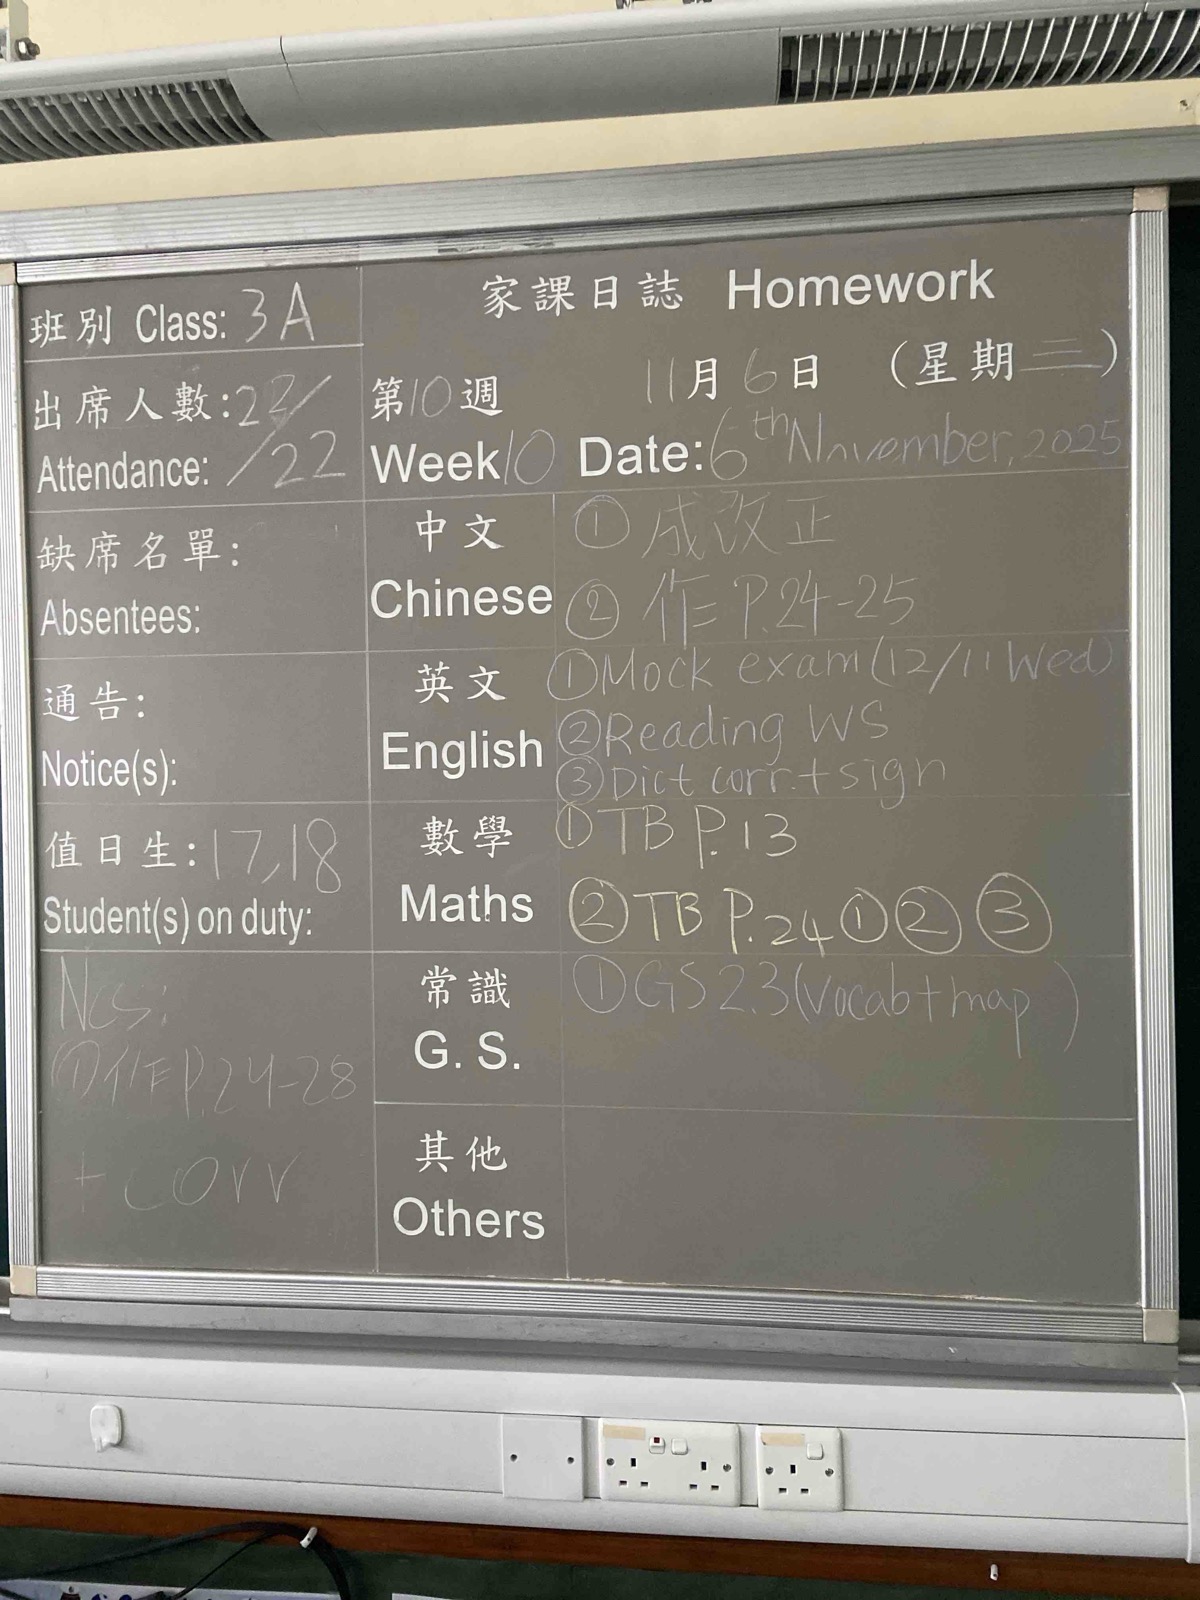 班別 Class: 3A
出席人數: 22/
Attendance: /22
缺席名單:
Absentees:
通告:
Notice(s):
值日生: 17,18
Student(s) on duty:
Ncs:
① 作 P.24-28
+ corr
家課日誌 Homework
第10週 11月6日 (星期三)
Week 10 Date: 6th November, 2025
中文
Chinese
① 成改正
② 作 P.24-25
英文
English
① Mock exam (12/11 Wed)
② Reading WS
③ Dict corr. + sign
數學
Maths
① TB P.13
② TB P.24 ① ② ③
常識
G. S.
① GS 2.3 (Vocab + map )
其他
Others